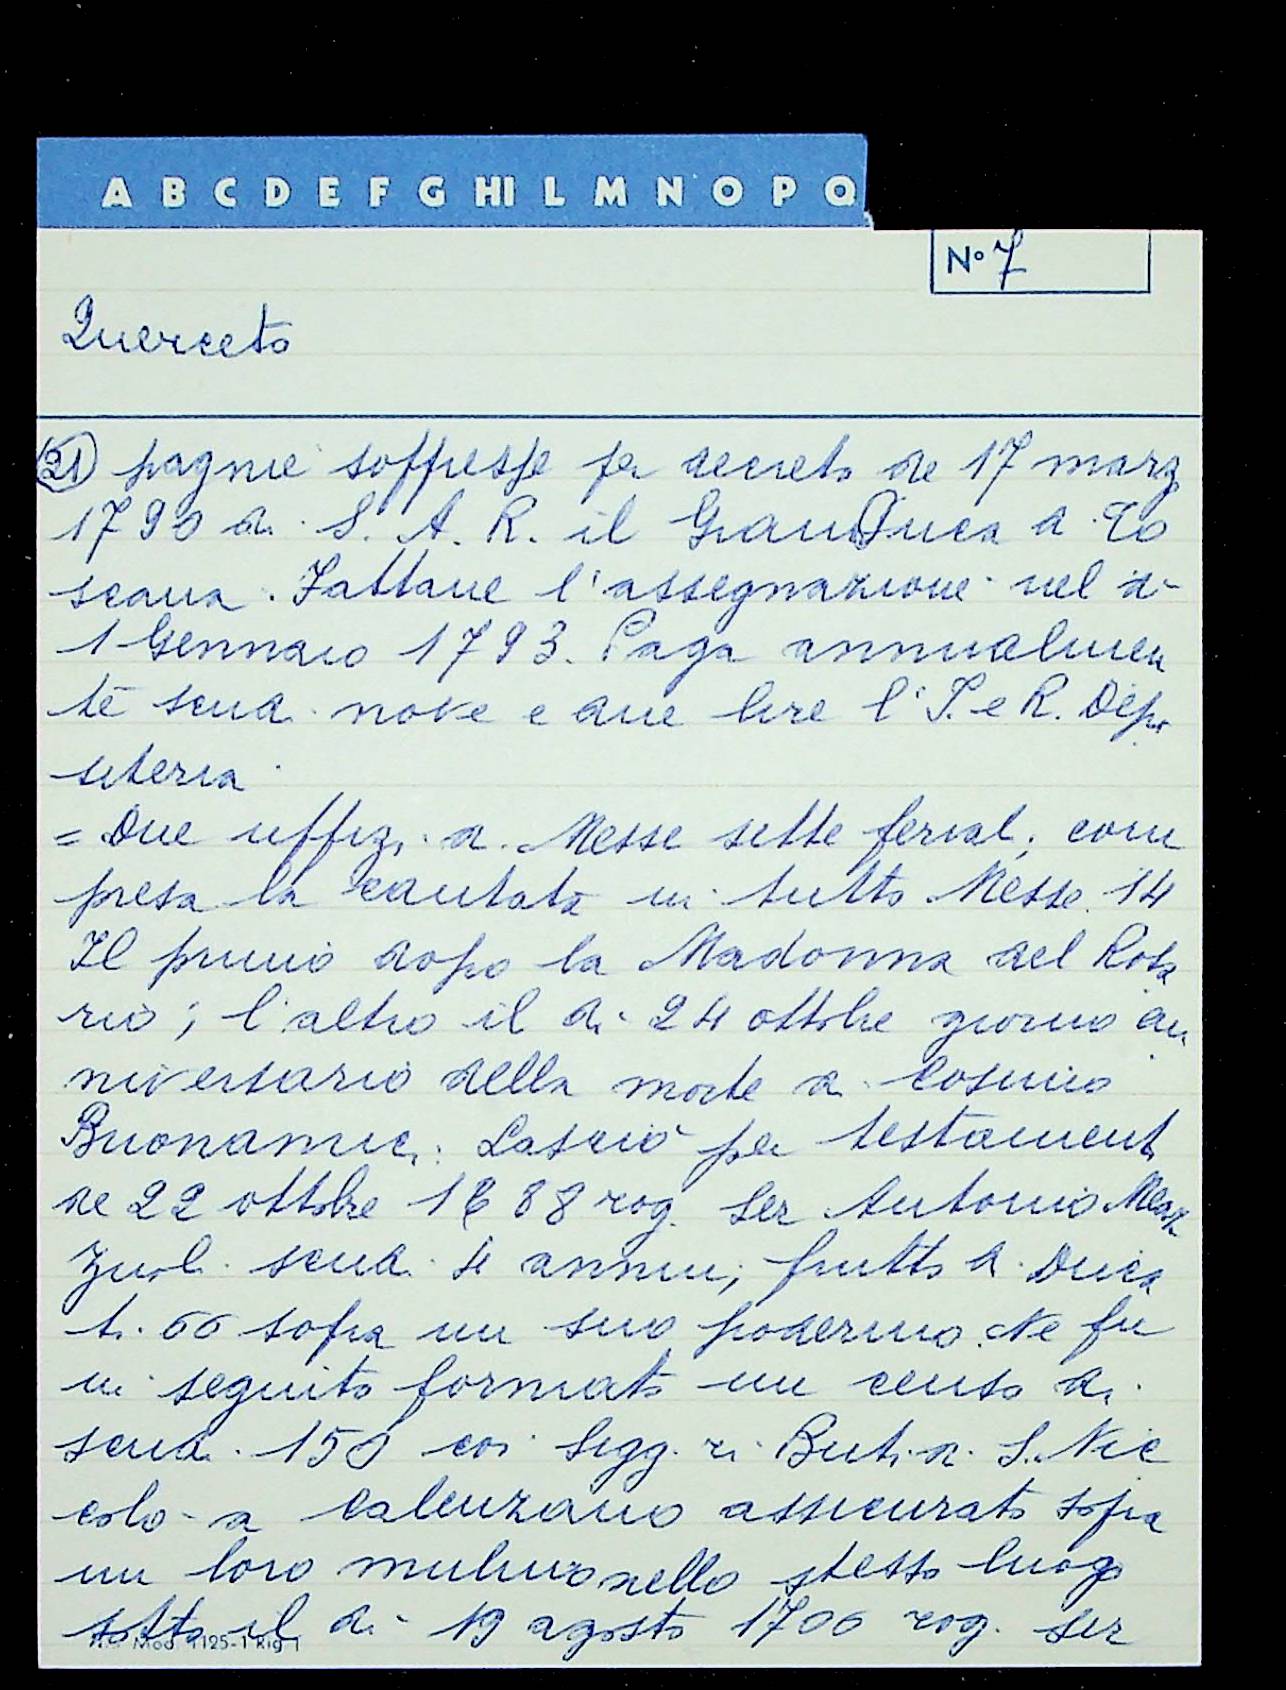 A B C D E F G HI L M N O P Q
No 7
Querceto
(21) pagnie soppresse per decreto de 17 marz
1790 di S. A. R. il GranDuca di To
scana. Fattane l'assegnazione nel dì
1 Gennaio 1793. Paga annualmen
te scudi nove e due lire l'I. e R. Depo
siteria
= Due uffizi di Messe sette feriali, com
presa la cantata in tutto Messe 14
Il primo dopo la Madonna del Rosa
rio; l'altro il dì 24 ottobre giorno an
niversario della morte di Cosimo
Buonamici. Lasciò per testamento
de 22 ottobre 1688 rog. Ser Antonio Maz
zuoli scudi 4 annui, frutto di Duca
ti 66 sopra un suo poderino. Ne fu
in seguito formato un censo di
scudi 150 coi Sigg.ri Buti di S. Nic
colo a Calenzano assicurato sopra
un loro mulino nello stesso luogo
sotto il dì 19 agosto 1706 rog. ser
Mod. 1125-1 Rig 1